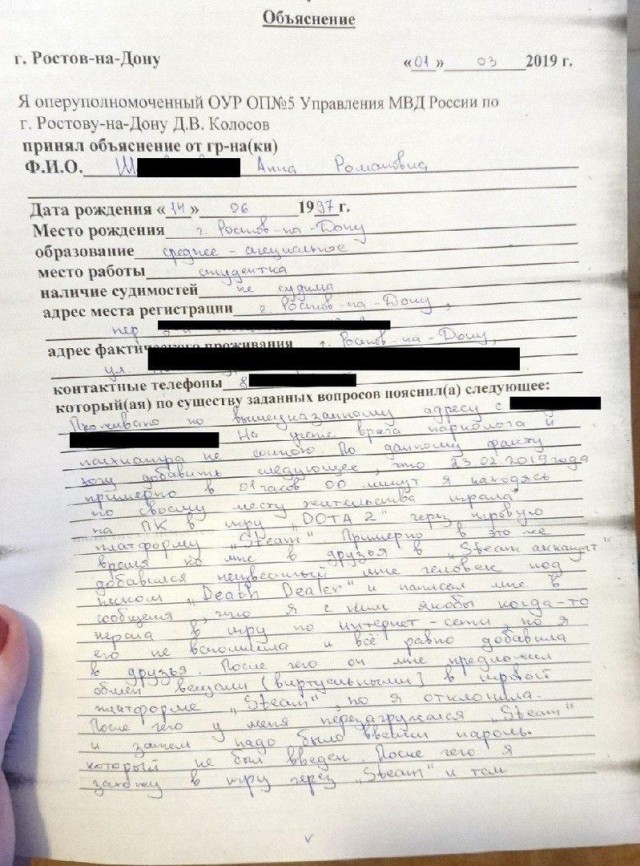 Объяснение
г. Ростов-на-Дону «01» 03 2019 г.
Я оперуполномоченный ОУР ОП№5 Управления МВД России по
г. Ростову-на-Дону Д.В. Колосов
принял объяснение от гр-на(ки)
Ф.И.О. Ш Анна Романовна
Дата рождения «14» 06 1997 г.
Место рождения г. Ростов-на-Дону
образование среднее-специальное
место работы студентка
наличие судимостей не судима
адрес места регистрации г. Ростов-на-Дону,
пер
адрес фактического проживания г. Ростов-на-Дону,
ул.
контактные телефоны 8
который(ая) по существу заданных вопросов пояснил(а) следующее:
Проживаю по вышеуказанному адресу с
На учете врача нарколога и
психиатра не состою. По данному факту
хочу добавить следующее, что 23.02.2019 года
примерно в 01 часов 00 минут я находясь
по своему месту жительства играла
на ПК в игру „DOTA 2" через игровую
платформу „Steam". Примерно в это же
время ко мне в друзья в „Steam аккаунт"
добавился неизвестный мне человек под
ником „Death Dealer" и написал мне в
сообщения, что я с ним якобы когда-то
играла в игру по интернет-сети, но я
его не вспомнила и всё равно добавила
в друзья. После чего он мне предложил
обмен вещами (виртуальными) в игровой
платформе „Steam", но я отклонила.
После чего у меня перезагрузился „Steam"
и затем надо было ввести пароль.
который не был введен. После чего я
захожу в игру через „Steam" и там